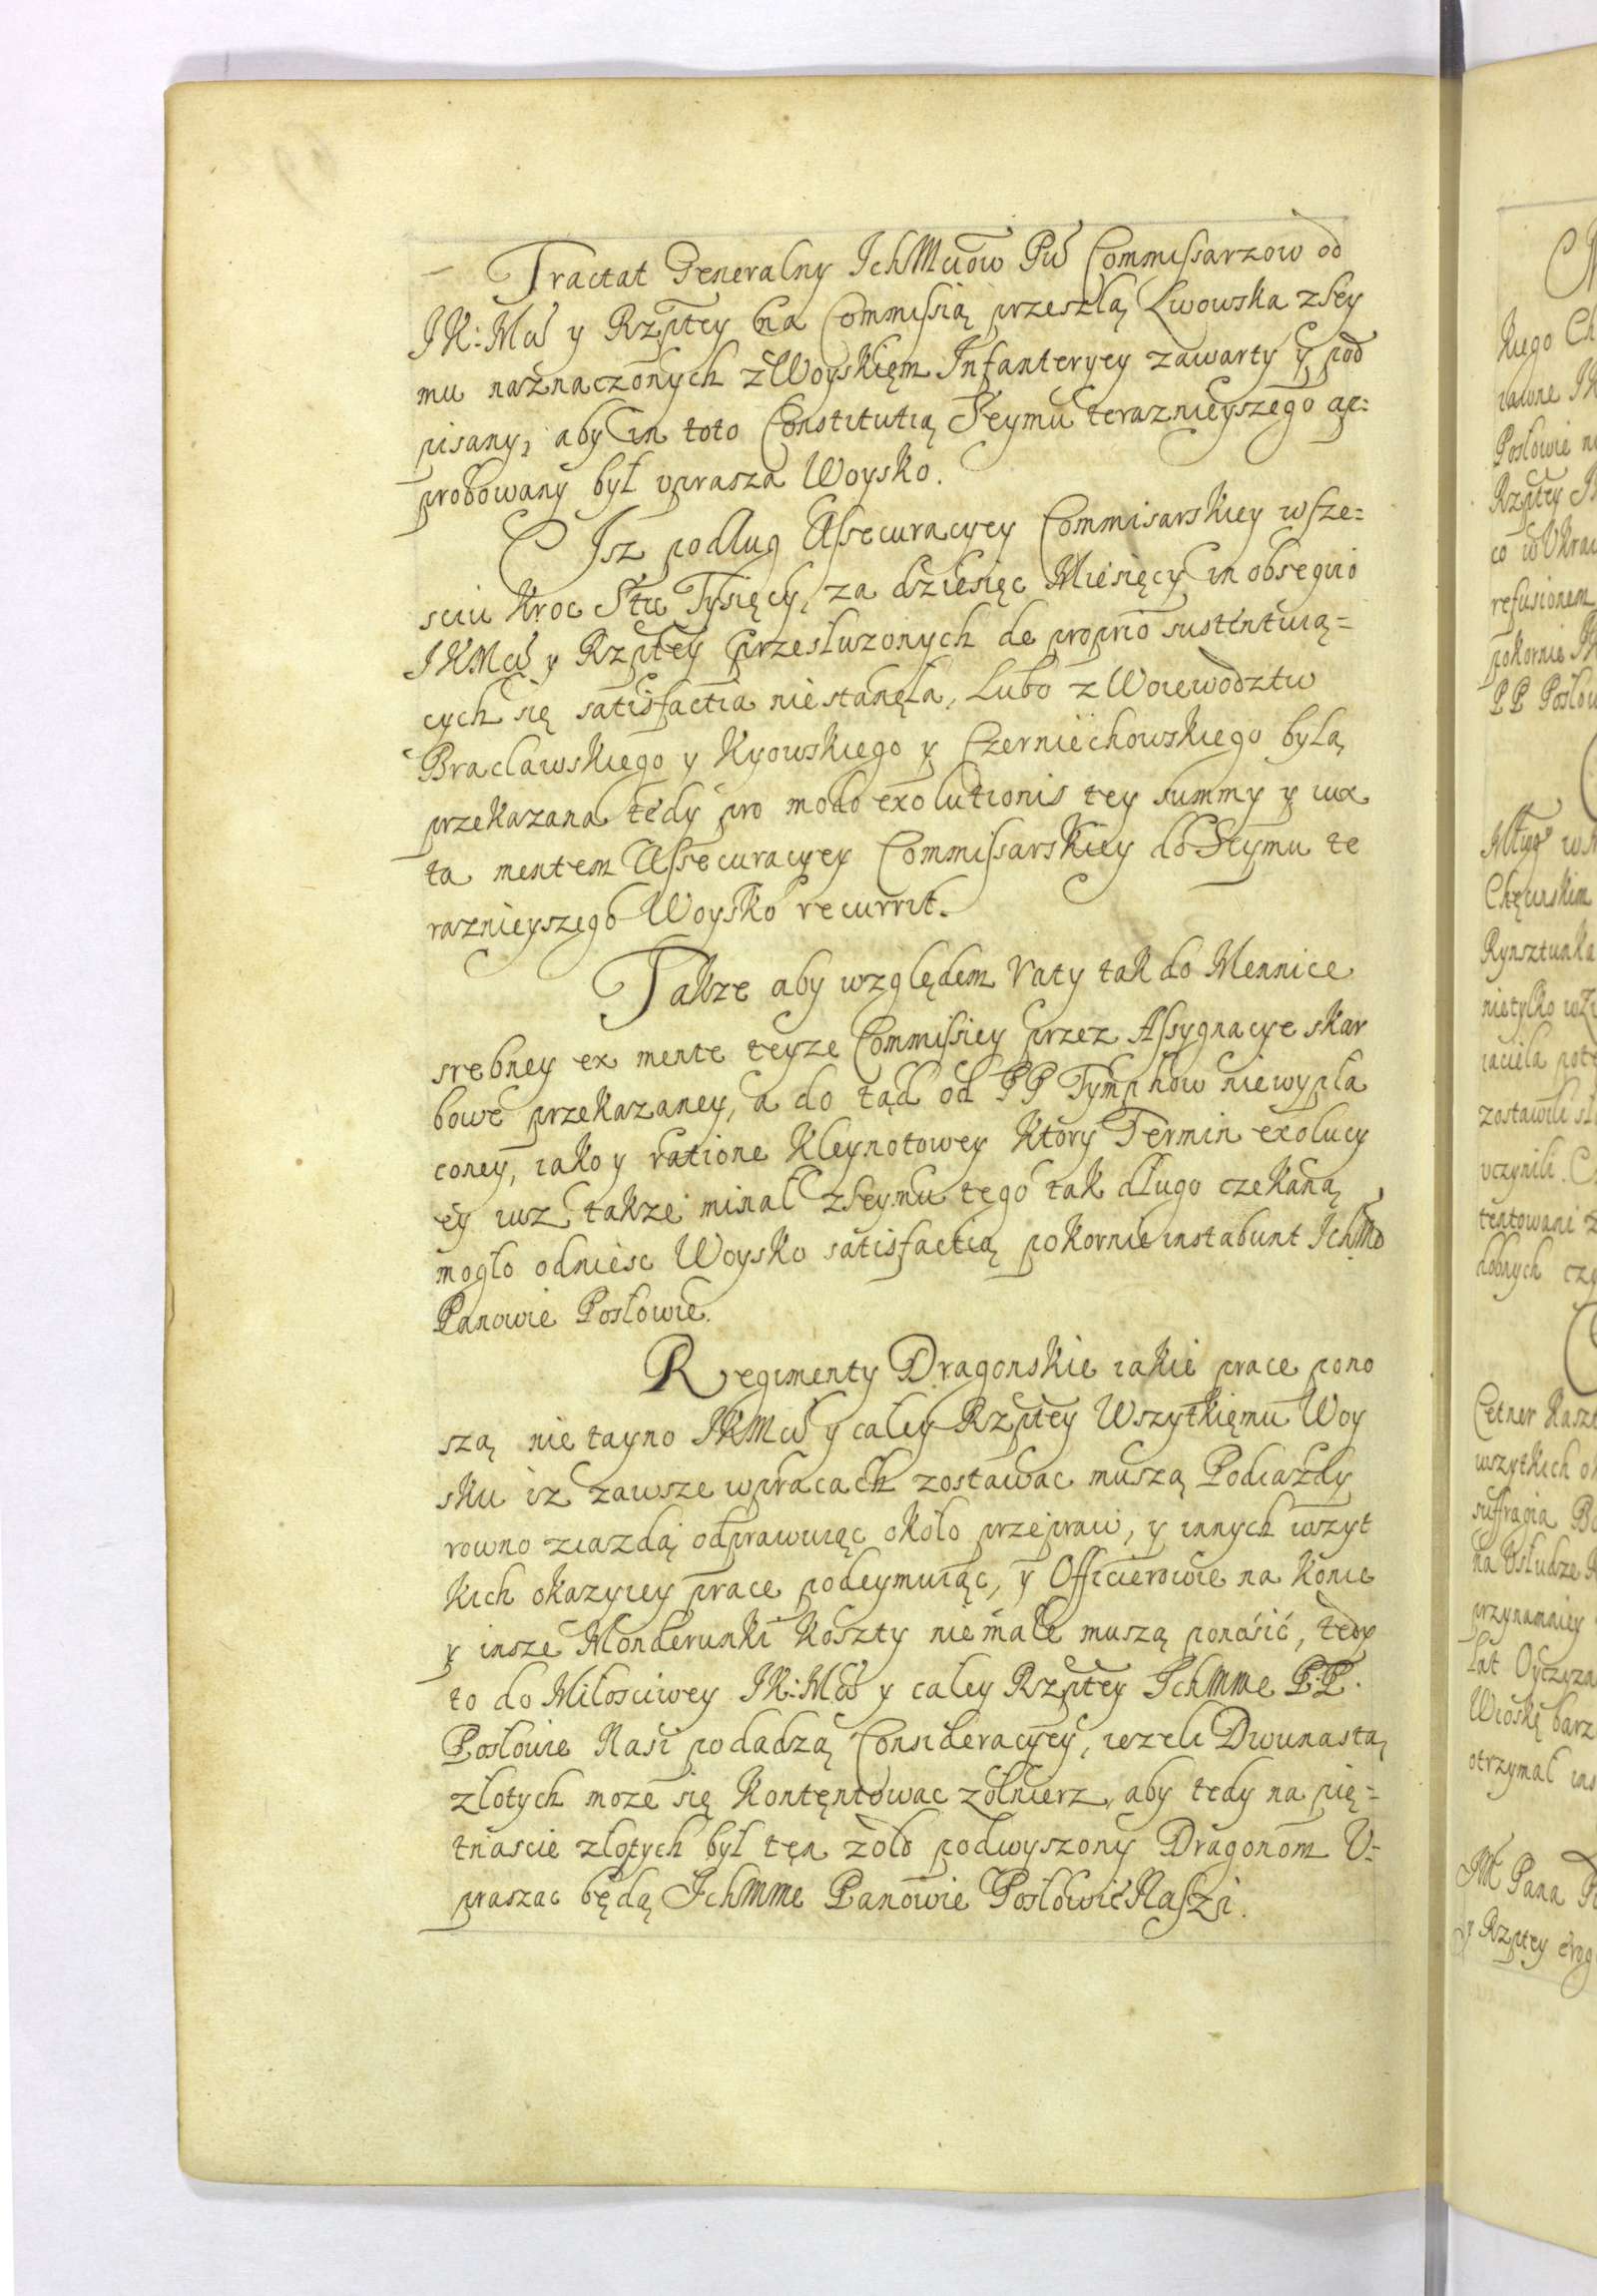 Tractat Generalny IchMciow Pw Commissarzow od
JK: Mci y Rzptey na Commissią przeszlą Lwowska z Sey
mu naznaczonych z Woyskięm Infanteryey zawarty y pod
pisany, aby in toto Constitutią Seymu teraznieyszego ap=
probowany był vprasza Woysko.
Isz podług Assecuracyey Commisarskiey w sze=
sciu kroc Stu Tysięcy, za dziesięc Miesięcy in obsequio
JKMci y Rzptey przesłuzonych de proprio sustentuią=
cych się satisfactia nie stanęła, Lubo z Woiewodztw
Braclawskiego y Kyowskiego y Czerniechowskiego byla
przekazana tedy pro modo exolutionis tey summy y iux
ta mentem Assecuracyey Commissarskiey do Seymu te
raznieyszego Woysko recurrit.
Takze aby względem raty tak do Mennice
srebney ex mente teyze Commissiey przez Assygnacye skar
bowe przekazaney, a do tąd od PP Tymphow niewypla
coney, iako y ratione Kleynotowey ktory Termin exolucy
ey iuz takze minał z Seymu tego tak długo czekaną
mogło odniesc Woysko satisfactią pokornie instabunt IchMo
Panowie Posłowie.
Regimenty Dragonskie iakie prace pono
szą nie tayno JKMci y caley Rzptey Wszytkięmu Woy
sku iz zawsze w pracach zostawac muszą Podiazdy
rowno z iazdą odprawuiąc około przepraw, y innych wszyt
kich okazyiey prace podeymuiąc, y Officierowie na konie
y insze Monderunki koszty niemałe muszą ponosić, tedy
to do Miłosciwey JK: Mci y caley Rzptey Ichmme P.P.
Posłowie Nasi podadzą Consideracyey, iezeli Dwunastą
zlotych moze się kontęntowac zołnierz, aby tedy na pię=
tnascie złotych był tęn zołd podwyszony Dragonom U=
praszac będą Ichmme Panowie Posłowie Naszi.